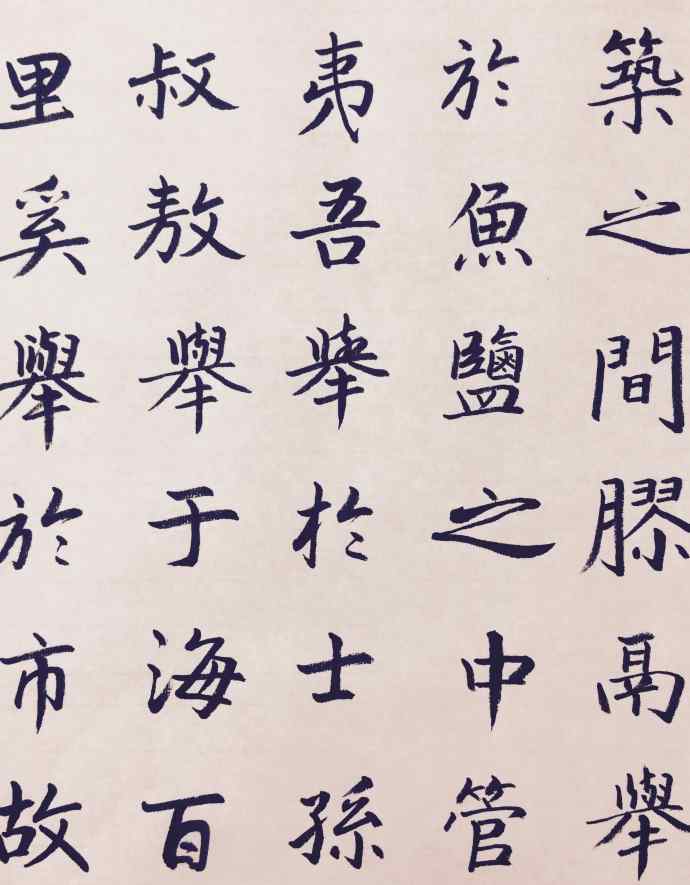 築之間膠鬲舉
於魚鹽之中管
夷吾舉於士孫
叔敖舉于海百
里奚舉於市故